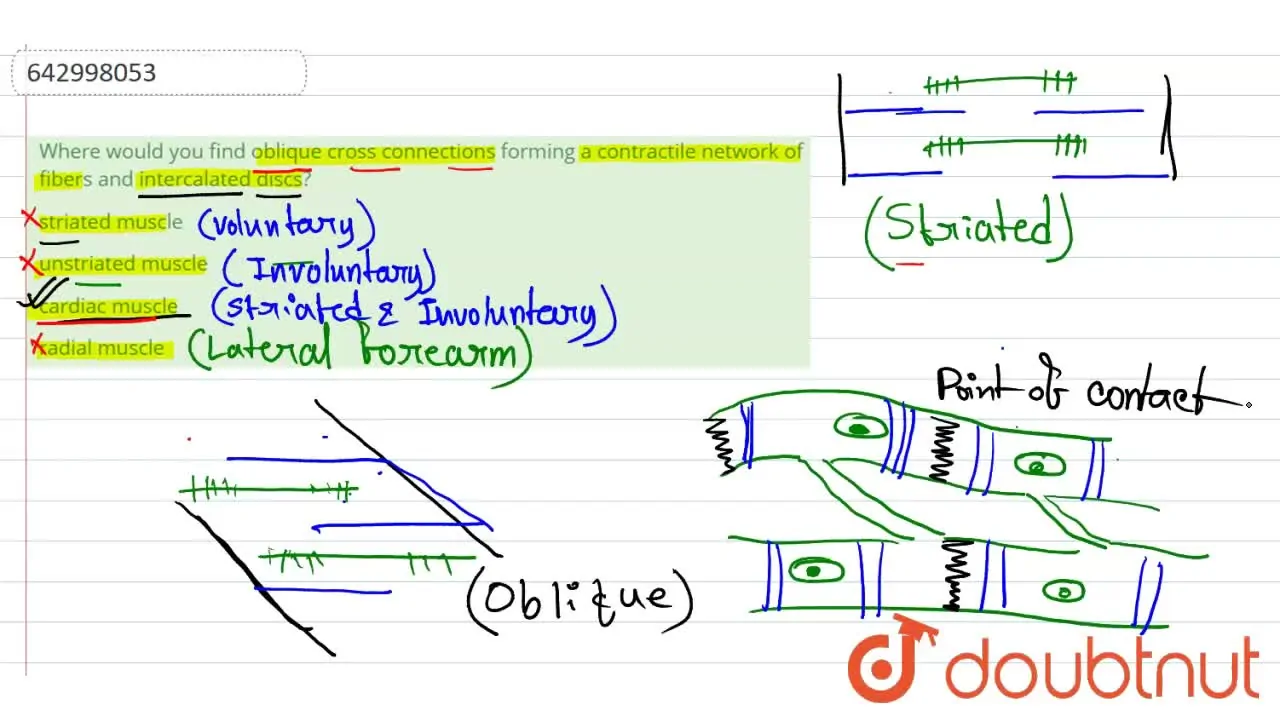 642998053
Where would you find oblique cross connections forming a contractile network of
fibers and intercalated discs?
striated muscle (Voluntary)
unstriated muscle (Involuntary)
cardiac muscle (Striated & Involuntary)
radial muscle (Lateral Forearm)
(Striated)
Point of contact
(Oblique)
doubtnut